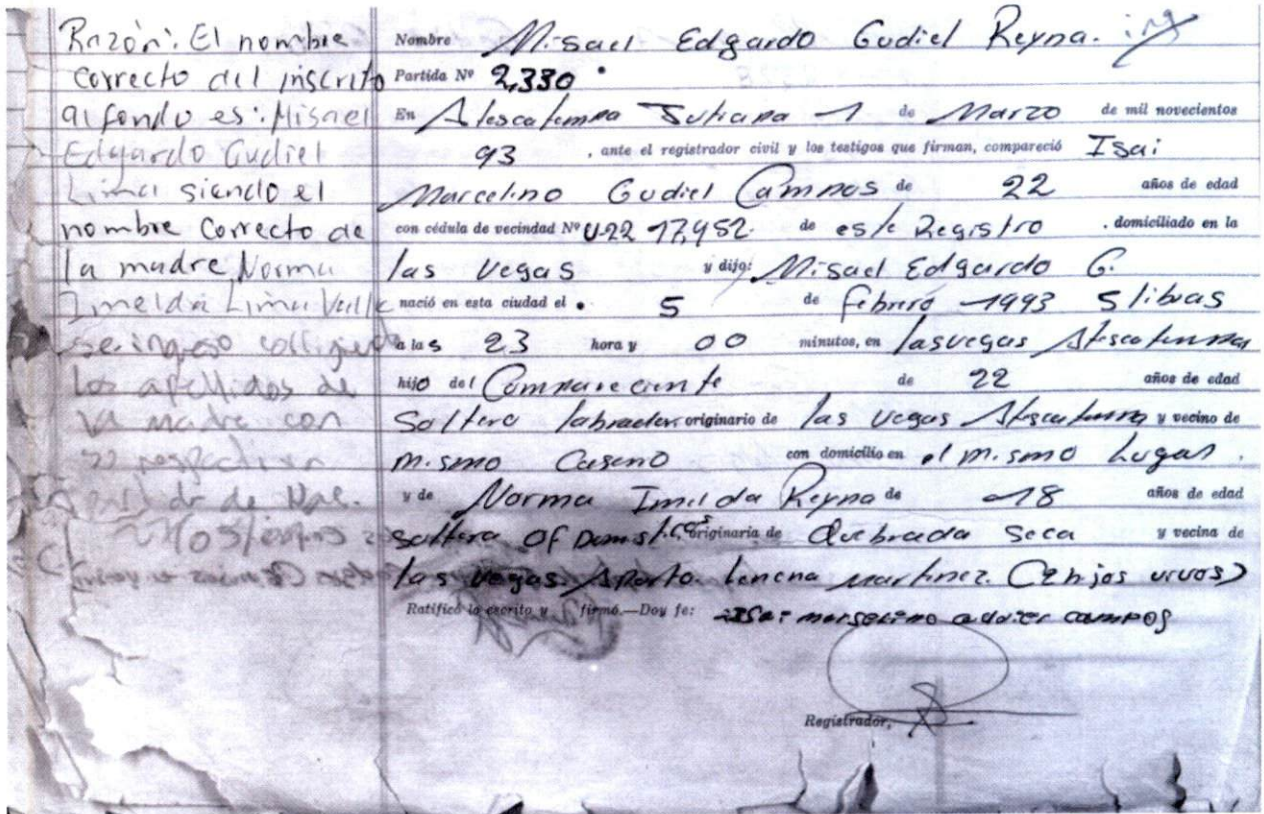 Razón: El nombre
correcto del inscrito
al fondo es: Misael
Edgardo Gudiel
Lima siendo el
nombre Correcto de
la madre Norma
Imelda Lima Valle
se ingreso
los apellidos de
la madre con
su respectiva
de Nac.
Nombre Misael Edgardo Gudiel Reyna.
Partida Nº 2,330
En Atescatempa Jutiapa 1 de Marzo de mil novecientos
93 , ante el registrador civil y los testigos que firman, compareció Isai
Marcelino Gudiel Campos de 22 años de edad
con cédula de vecindad Nº U-22 17,452. de este Registro . domiciliado en la
las vegas y dijo: Misael Edgardo G.
nació en esta ciudad el 5 de febrero 1993 5 libras
a las 23 hora y 00 minutos, en las vegas Atescatempa
hijo del Compareciente de 22 años de edad
Soltero labrador originario de las vegas Atescatempa y vecino de
mismo Caserio con domicilio en el mismo Lugar.
y de Norma Imilda Reyna de 18 años de edad
soltera of Domest. originaria de Quebrada Seca y vecina de
las vegas. Martinez. (2 hijos vivos)
Ratificó lo escrito y firmó.—Doy fe: isai campos
Registrador,